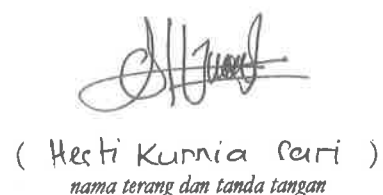 ( Hesti Kurnia Sari )
nama terang dan tanda tangan